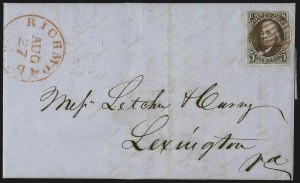 RICHMOND
AUG
27
Messrs Letcher & Curry
Lexington
Va